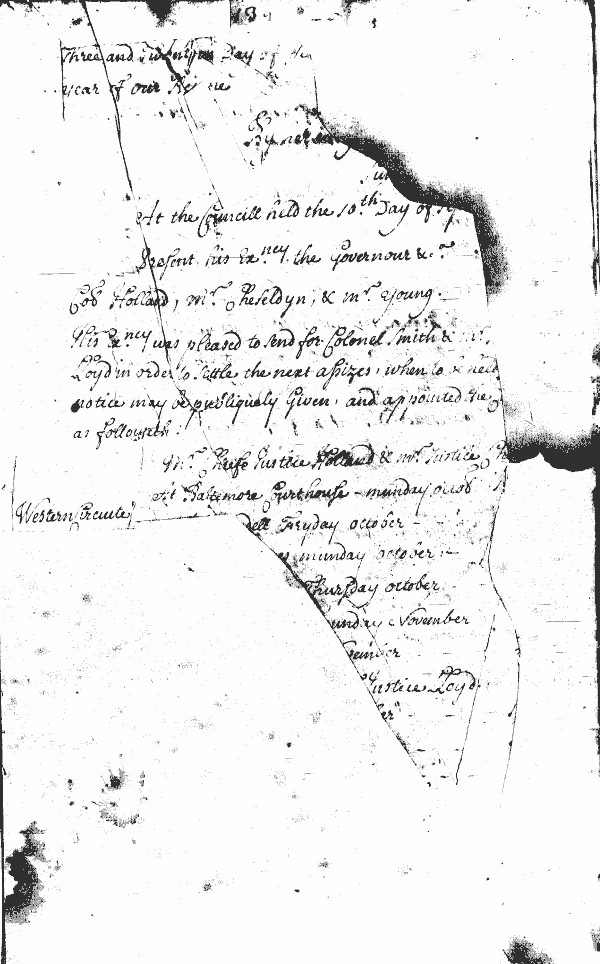 Three and Day of
year of our
At the Councill held the 10th Day of
Present his Exncy the Governour &c
Holland, Mr Cheseldyn, & Mr Young
His Exncy was pleased to send for Colonel Smith &
Loyd in order to settle the next assizes, when to be held
notice may be publiquely Given, and appointed the
as followeth
Mr Cheife Justice Holland & Mr Justice
At Baltemore Courthouse munday octob
Western Circuite
dell Fryday october
munday october
Thursday october
unday November
vember
Justice Lloyd